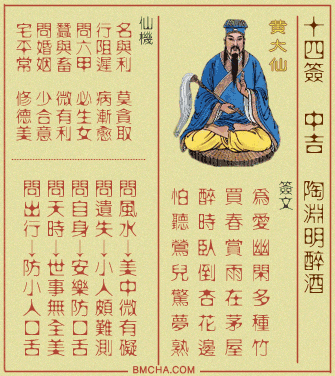 十四簽 中吉 陶淵明醉酒
黃大仙
簽文
為愛幽閑多種竹
買春賞雨在茅屋
醉時臥倒杏花邊
怕聽鶯兒驚夢熟
仙機
名與利 莫貪取
行阻遲 病漸愈
問六甲 必生女
蠶與畜 微有利
問婚姻 少合意
宅平常 修德美
問風水→美中微有礙
問遺失→小人頗難測
問自身→安樂防口舌
問天時→世事無全美
問出行→防小人口舌
BMCHA.COM